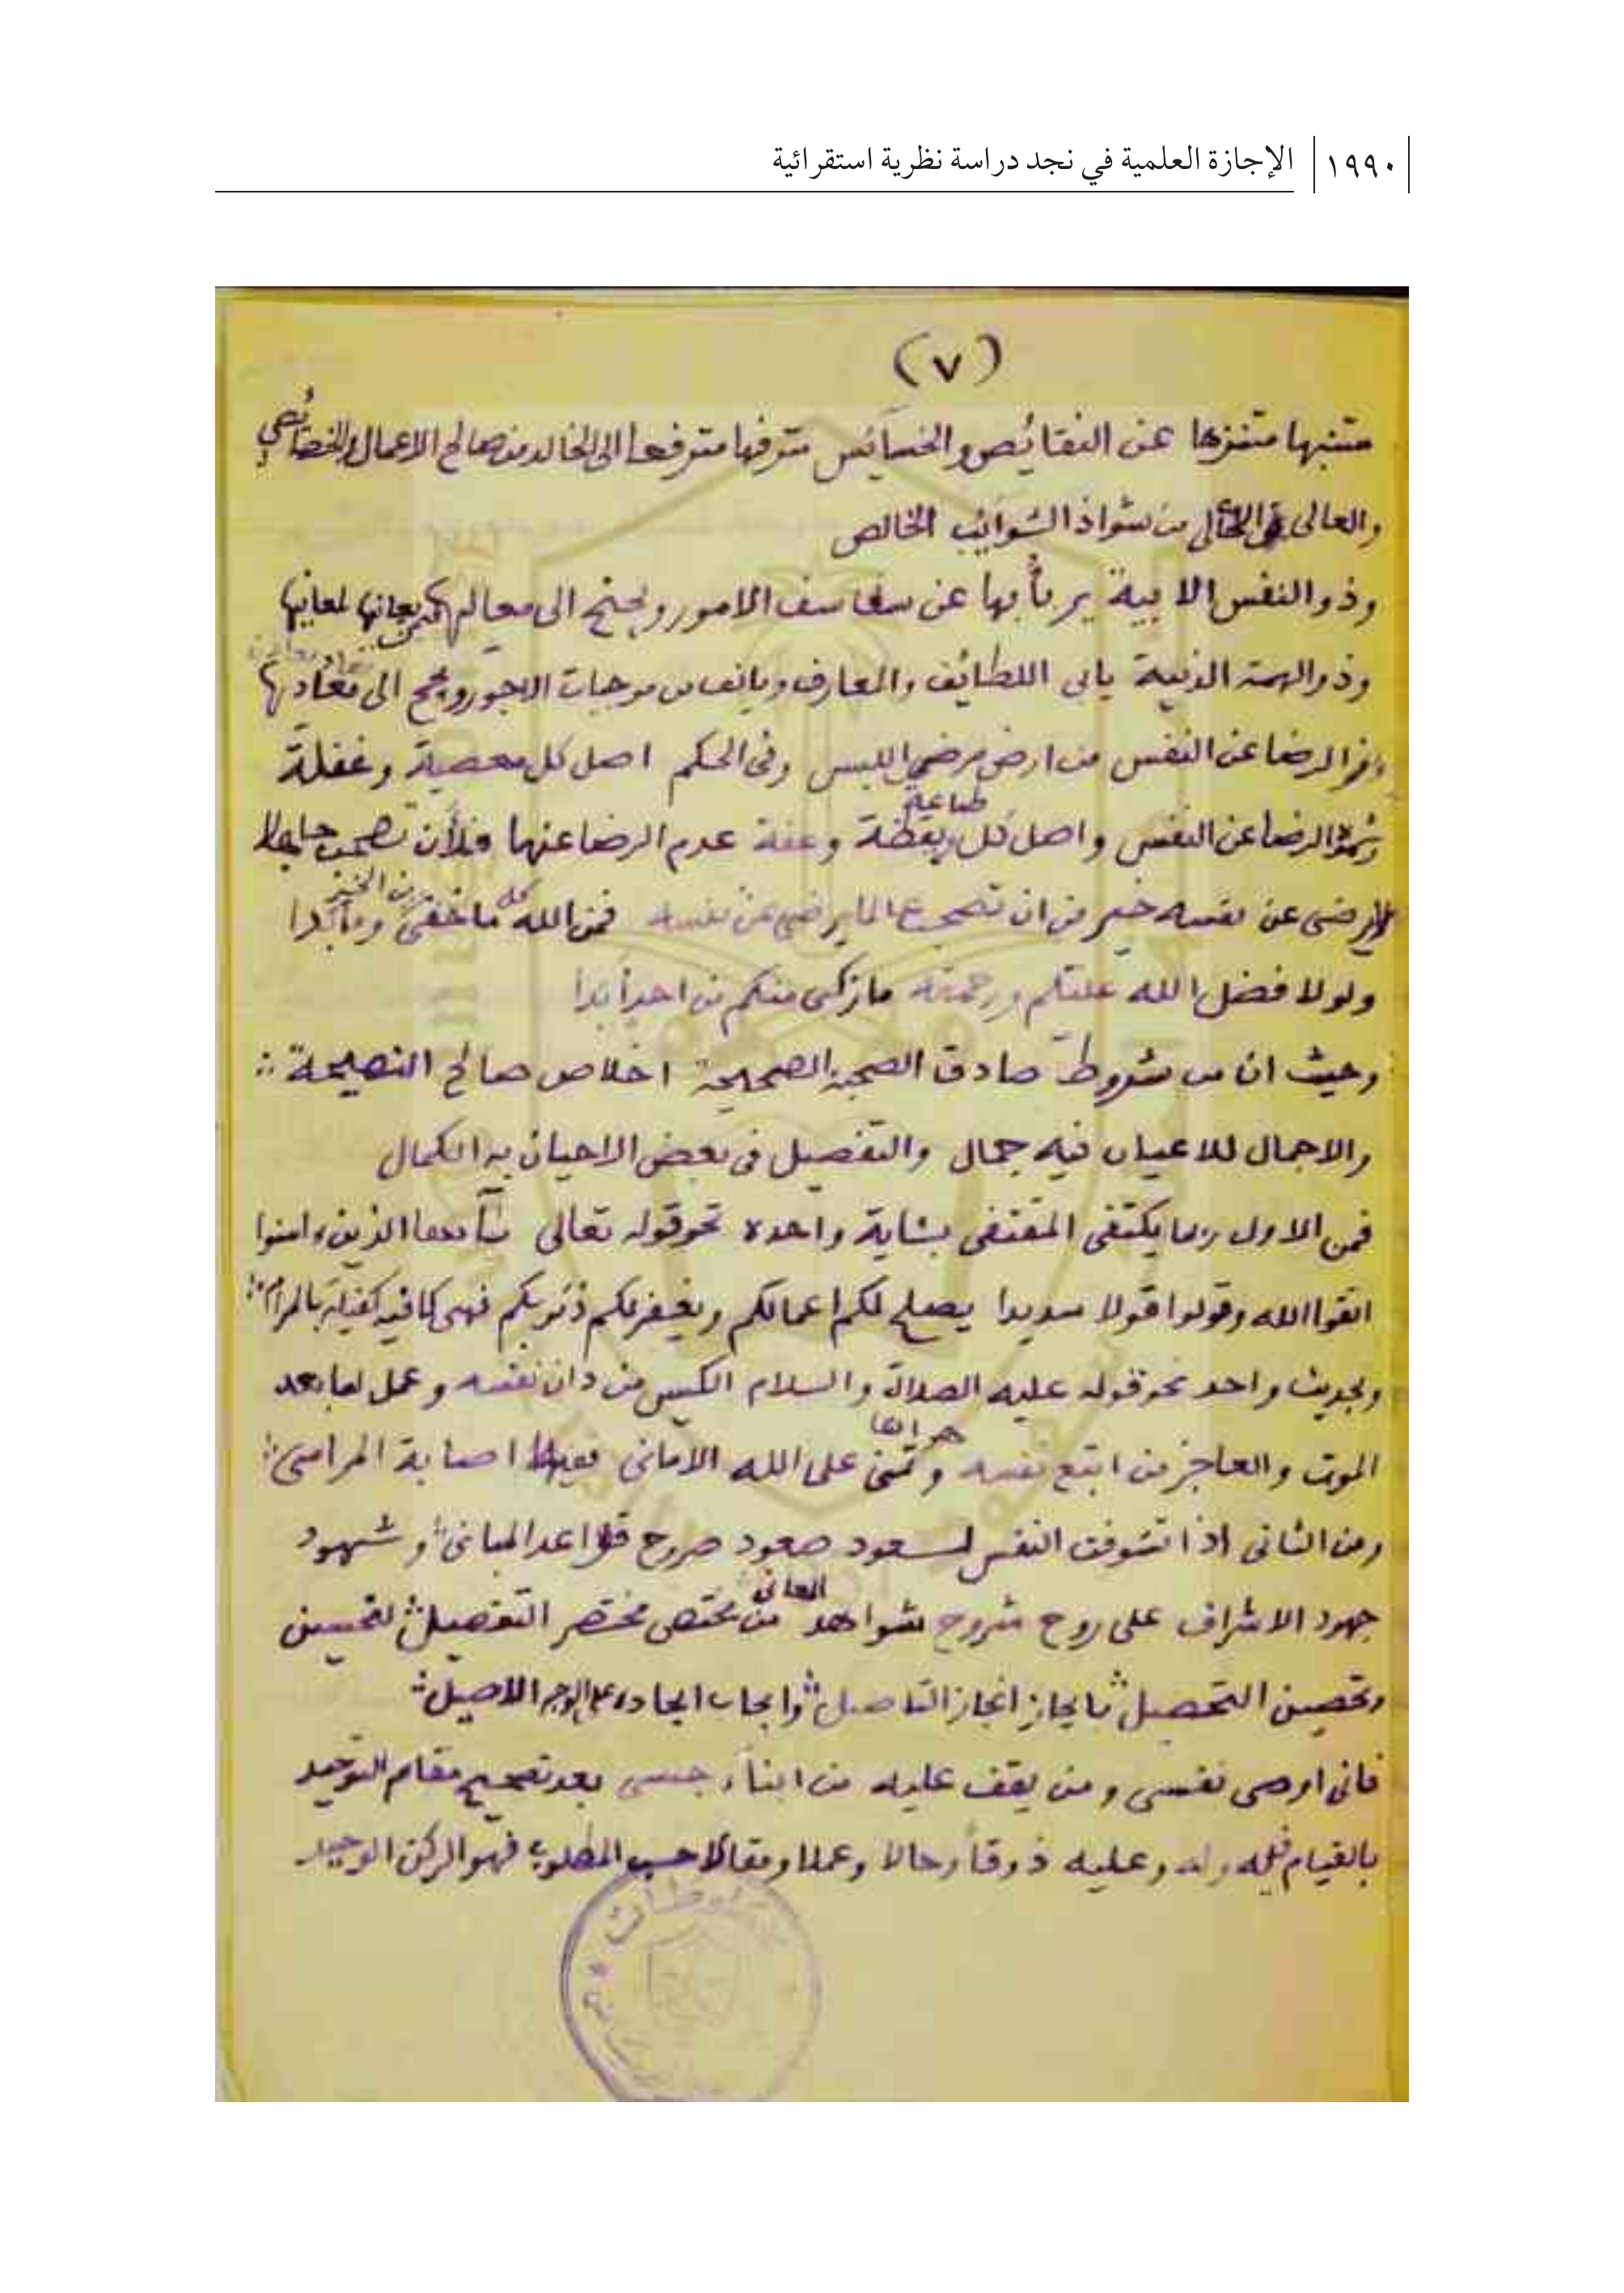 ١٩٩٠ الإجازة العلمية في نجد دراسة نظرية استقرائية
(٧)
متنبها متنزها عن النقائص والخسائس مترفها مترفعا الى الخالد من صالح الاعمال والخصائص
والعالى الخالى من شواذ الشوائب الخالص
وذو النفس الابية يربأ بها عن سفاسف الامور ويجنح الى معاليها لمعانيها
وذو الهمة الدنية يابى اللطائف والمعارف ويانف من موجبات الاجور ويجمح الى
الرضا عن النفس من ارض مرضى اللبس وفى الحكم اصل كل معصية وغفلة
الرضا عن النفس واصل كل طاعة ويقظة وعفة عدم الرضا عنها فلأن تصحب جاهلا
لا يرضى عن نفسه خير من ان تصحب عالما يرضى عن نفسه فمن الله كل ما خفى من الخير وما بدا
ولولا فضل الله عليكم ورحمته ما زكى منكم من احد ابدا
وحيث ان من شروط صادق الصحبة الصحيحة اخلاص صالح النصيحة
والاجمال للاعيان فيه جمال والتفصيل فى بعض الاحيان به الكمال
فمن الاول ربما يكتفى المقتفى بئاية واحدة نحو قوله تعالى يأيها الذين ءامنوا
اتقوا الله وقولوا قولا سديدا يصلح لكم اعمالكم ويغفر لكم ذنوبكم فهى كافية كفيلة بالمرام
وبحديث واحد نحو قوله عليه الصلاة والسلام الكيس من دان نفسه وعمل لما بعد
الموت والعاجز من اتبع نفسه هواها وتمنى على الله الامانى اصابة المرامى
ومن الثانى اذا تشوفت النفس لسعود صعود صروح قواعد المبانى وشهود
جهود الاشراف على روح شروح شواهد المعانى من مختصر التفصيل لتحسين
وتحصين التحصيل بايجاز انجاز التاصيل وايجاب ايجاده على الوجه الاصيل
فانى اوصى نفسى ومن يقف عليه من ابناء جنسى بعد تصحيح مقام التوحيد
بالقيام لله وله وعليه ذوقا وحالا وعملا ومقالا حسب المطلوب فهو الركن الوحيد